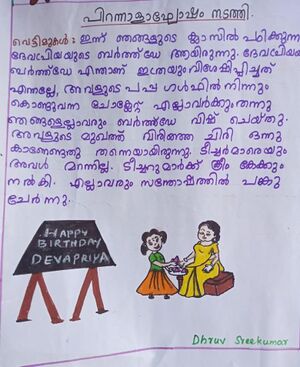 പിറന്നാളാഘോഷം നടത്തി.
വെട്ടിമുകൾ: ഇന്ന് ഞങ്ങളുടെ ക്ലാസിൽ പഠിക്കുന്ന
ദേവപ്രിയയുടെ ബർത്ത്ഡേ ആയിരുന്നു. ദേവപ്രിയയുടെ
ബർത്ത്ഡേ എന്താണ് ഇത്രയും വിശേഷിപ്പിച്ചത്
എന്നല്ലേ, അവളുടെ പപ്പ ഗൾഫിൽ നിന്നും
കൊണ്ടുവന്ന ചോക്ലേറ്റ് എല്ലാവർക്കും തന്നു
ഞങ്ങളെല്ലാവരും ബർത്ത്ഡേ വിഷ് ചെയ്തു.
അവളുടെ മുഖത്ത് വിരിഞ്ഞ ചിരി ഒന്നു
കാണേണ്ടതു തന്നെയായിരുന്നു. ടീച്ചർമാരെയും
അവൾ മറന്നില്ല. ടീച്ചറുമാർക്ക് ക്രീം കേക്കും
നൽകി. എല്ലാവരും സന്തോഷത്തിൽ പങ്കു
ചേർന്നു.
HAPPY
BIRTHDAY
DEVAPRIYA
Dhruv Sreekumar